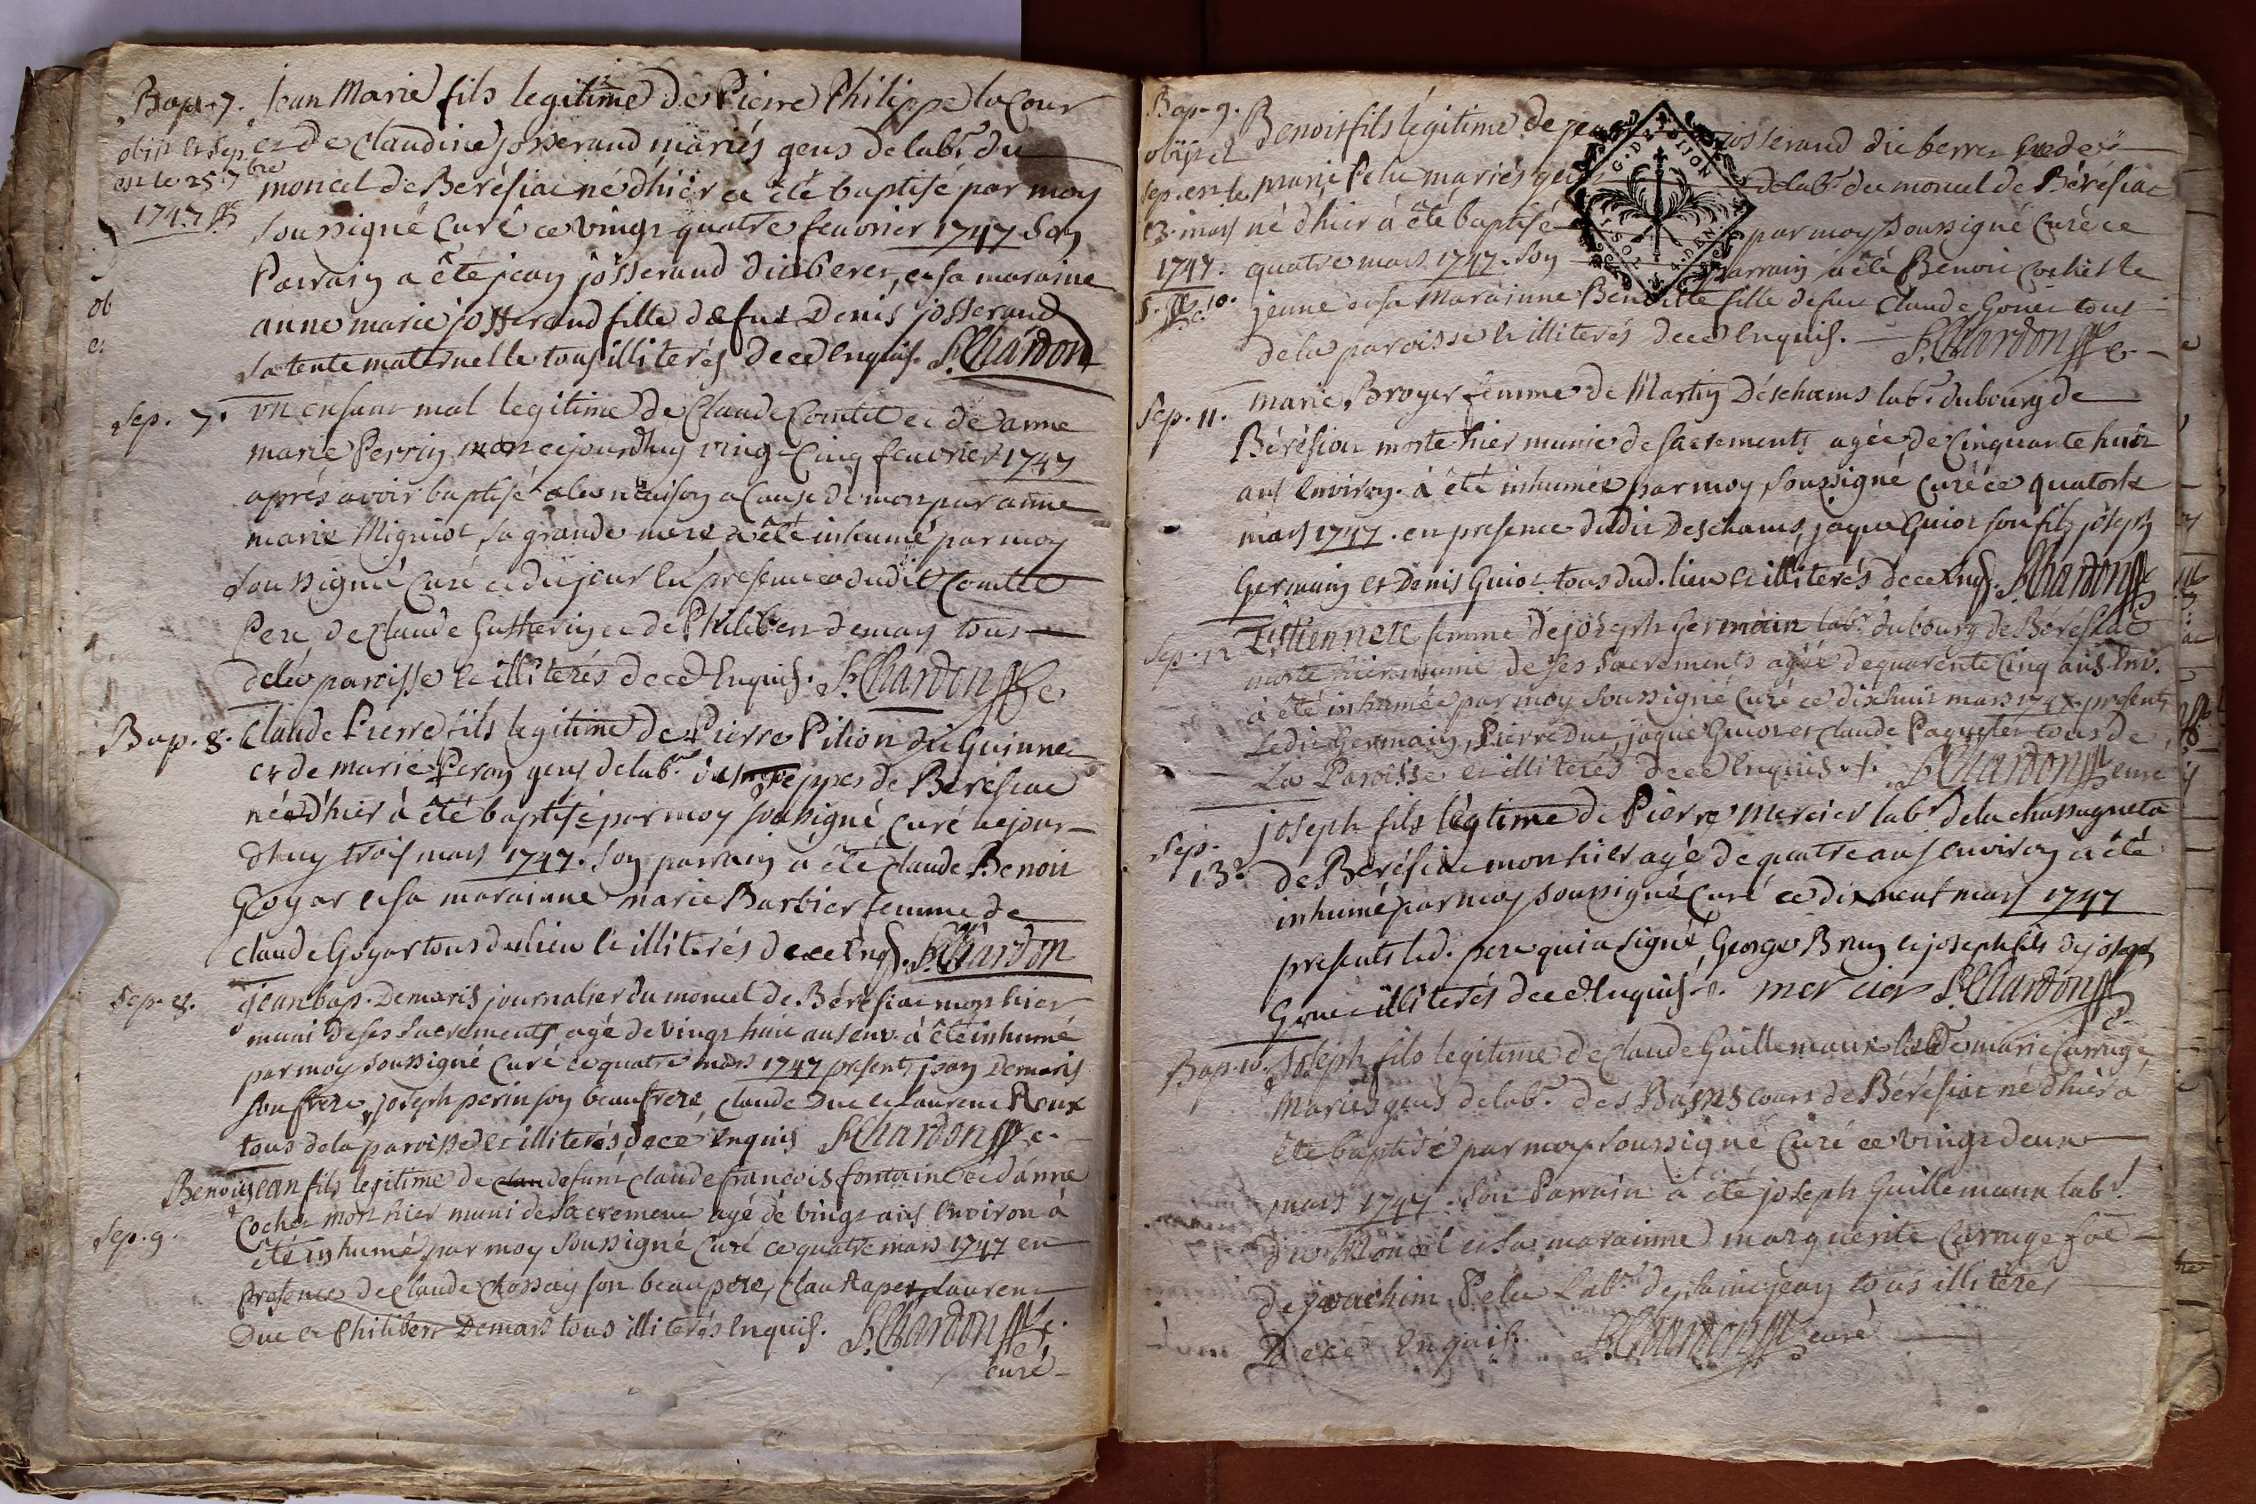 Bapt. 7. Jean Marie fils legitime de Pierre Philippe la Cour
obiit et sep. et de Claudine josserand mariés gens de lab.r du
est le 25 7bre moncel de Berésiac né d'hier a été baptisé par moy
1747 soussigné Curé ce vingt quatre feuvrier 1747 Son
Parrain a été jean josserand dit berer, et sa maraine
anne marie josserand fille de fut Denis josserand
sa tente maternelle tous illiterés de ce enquis. Chardon
Sep. 7. un enfant mal legitime de Claude Comtet et de anne
marie Perrin mort cejourdhuy vingt Cinq feuvrier 1747
après avoir baptisé a la maison a Cause de mort par anne
marie Migniot sa grande mere a été inhumé par moy
soussigné Curé ce dit jour en presence dudit Comtet
Pere, de Claude Gutherin et de Philibert demay tous
de la paroisse et illiterés de ce enquis. Chardon
Bap. 8. Claude Pierre fils legitime de Pierre Pilion dit Guinne
et de marie Peron gens de lab.r de Berésiac
né d'hier à été baptisé par moy soussigné Curé cejour
dhuy trois mars 1747. son parrain a été Claude Benoit
Goyar et sa marainne marie Barbier femme de
Claude Goyar tous du lieu et illiterés de ce Chardon
Sep. 8. jean bap. Demaris journalier du moncel de Bérésiac mort hier
muni de ses sacrements agé de vingt huit ans env. à été inhumé
par moy soussigné Curé ce quatre mars 1747 presents jean Demaris
son frere, joseph perin son beaufrere, Claude Duc et Laurent Roux
tous de la paroisse et illiterés de ce enquis Chardon
Benoit jean fils legitime de defunt Claude francois fontaine et d'anne
Sep. 9. Cochet mort hier muni de sacrement agé de vingt ans environ à
été inhumé par moy soussigné Curé ce quatre mars 1747 en
presence de Claude Chossay son beau pere, Laurent
Duc et Philibert Demars tous illiterés enquis. Chardon
curé
Bap. 9. Benoit fils legitime de jean josserand dit berrer et de
obiit et marie Pelu mariés gens de lab.r du moncel de Bérésiac
sep. est le né d'hier à été baptisé par moy soussigné Curé ce
mars 1747. quatre mars 1747. Son Parrain à été Benoit Cochet le
jeune et sa Marainne Benoitte fille de feu Claude Gonet tous
de la paroisse et illiterés de ce enquis. Chardon
G. DE DIJON
SOLS 4. DEN.
Sep. 11. Marie Broyer femme de Martin Deschams lab.r du bourg de
Bérésiac morte hier munie de sacrements agée de Cinquante huit
ans environ. à été inhumée par moy soussigné Curé ce quatorze
mars 1747. en presence dudit Deschams, jaque Guiot son fils joseph
Germain et Denis Guiot tous dud. lieu et illiterés de ce Chardon
Sep. 12 Estiennete femme de joseph Germain lab.r du bourg de Bérésiac
morte hier munie de ses sacrements agée de quarente Cinq ans env.
à été inhumée par moy soussigné Curé ce dixhuit mars 1747. presents
ledit Germain, Pierre Duc, jaque Guiot et Claude Paquelet tous de
La Paroisse et illiterés de ce enquis. Chardon curé
Sep. 13. joseph fils legtime de Pierre Mercier lab.r de la chassagneta
de Berésiac mort hier agé de quatre ans environ à été
inhumé par moy soussigné Curé ce dix neuf mars 1747
presents led. pere qui a signé, George Brun et joseph fils de joseph
Gonet illiterés de ce enquis. mercier Chardon
Bap. 10. Joseph fils legitime de Claude Guillemaux et de marie Carruge
Mariés gens de lab.r des Basses Cours de Bérésiac né d'hier a
été baptisé par moy soussigné Curé ce vingt deux
mars 1747. son Parrain à été joseph Guillemaux lab.r
du Moncel et sa marainne marguerite Carruge fae
de joachim Pelu lab.r de saint jean tous illiteres
De ce enquis. Chardon curé